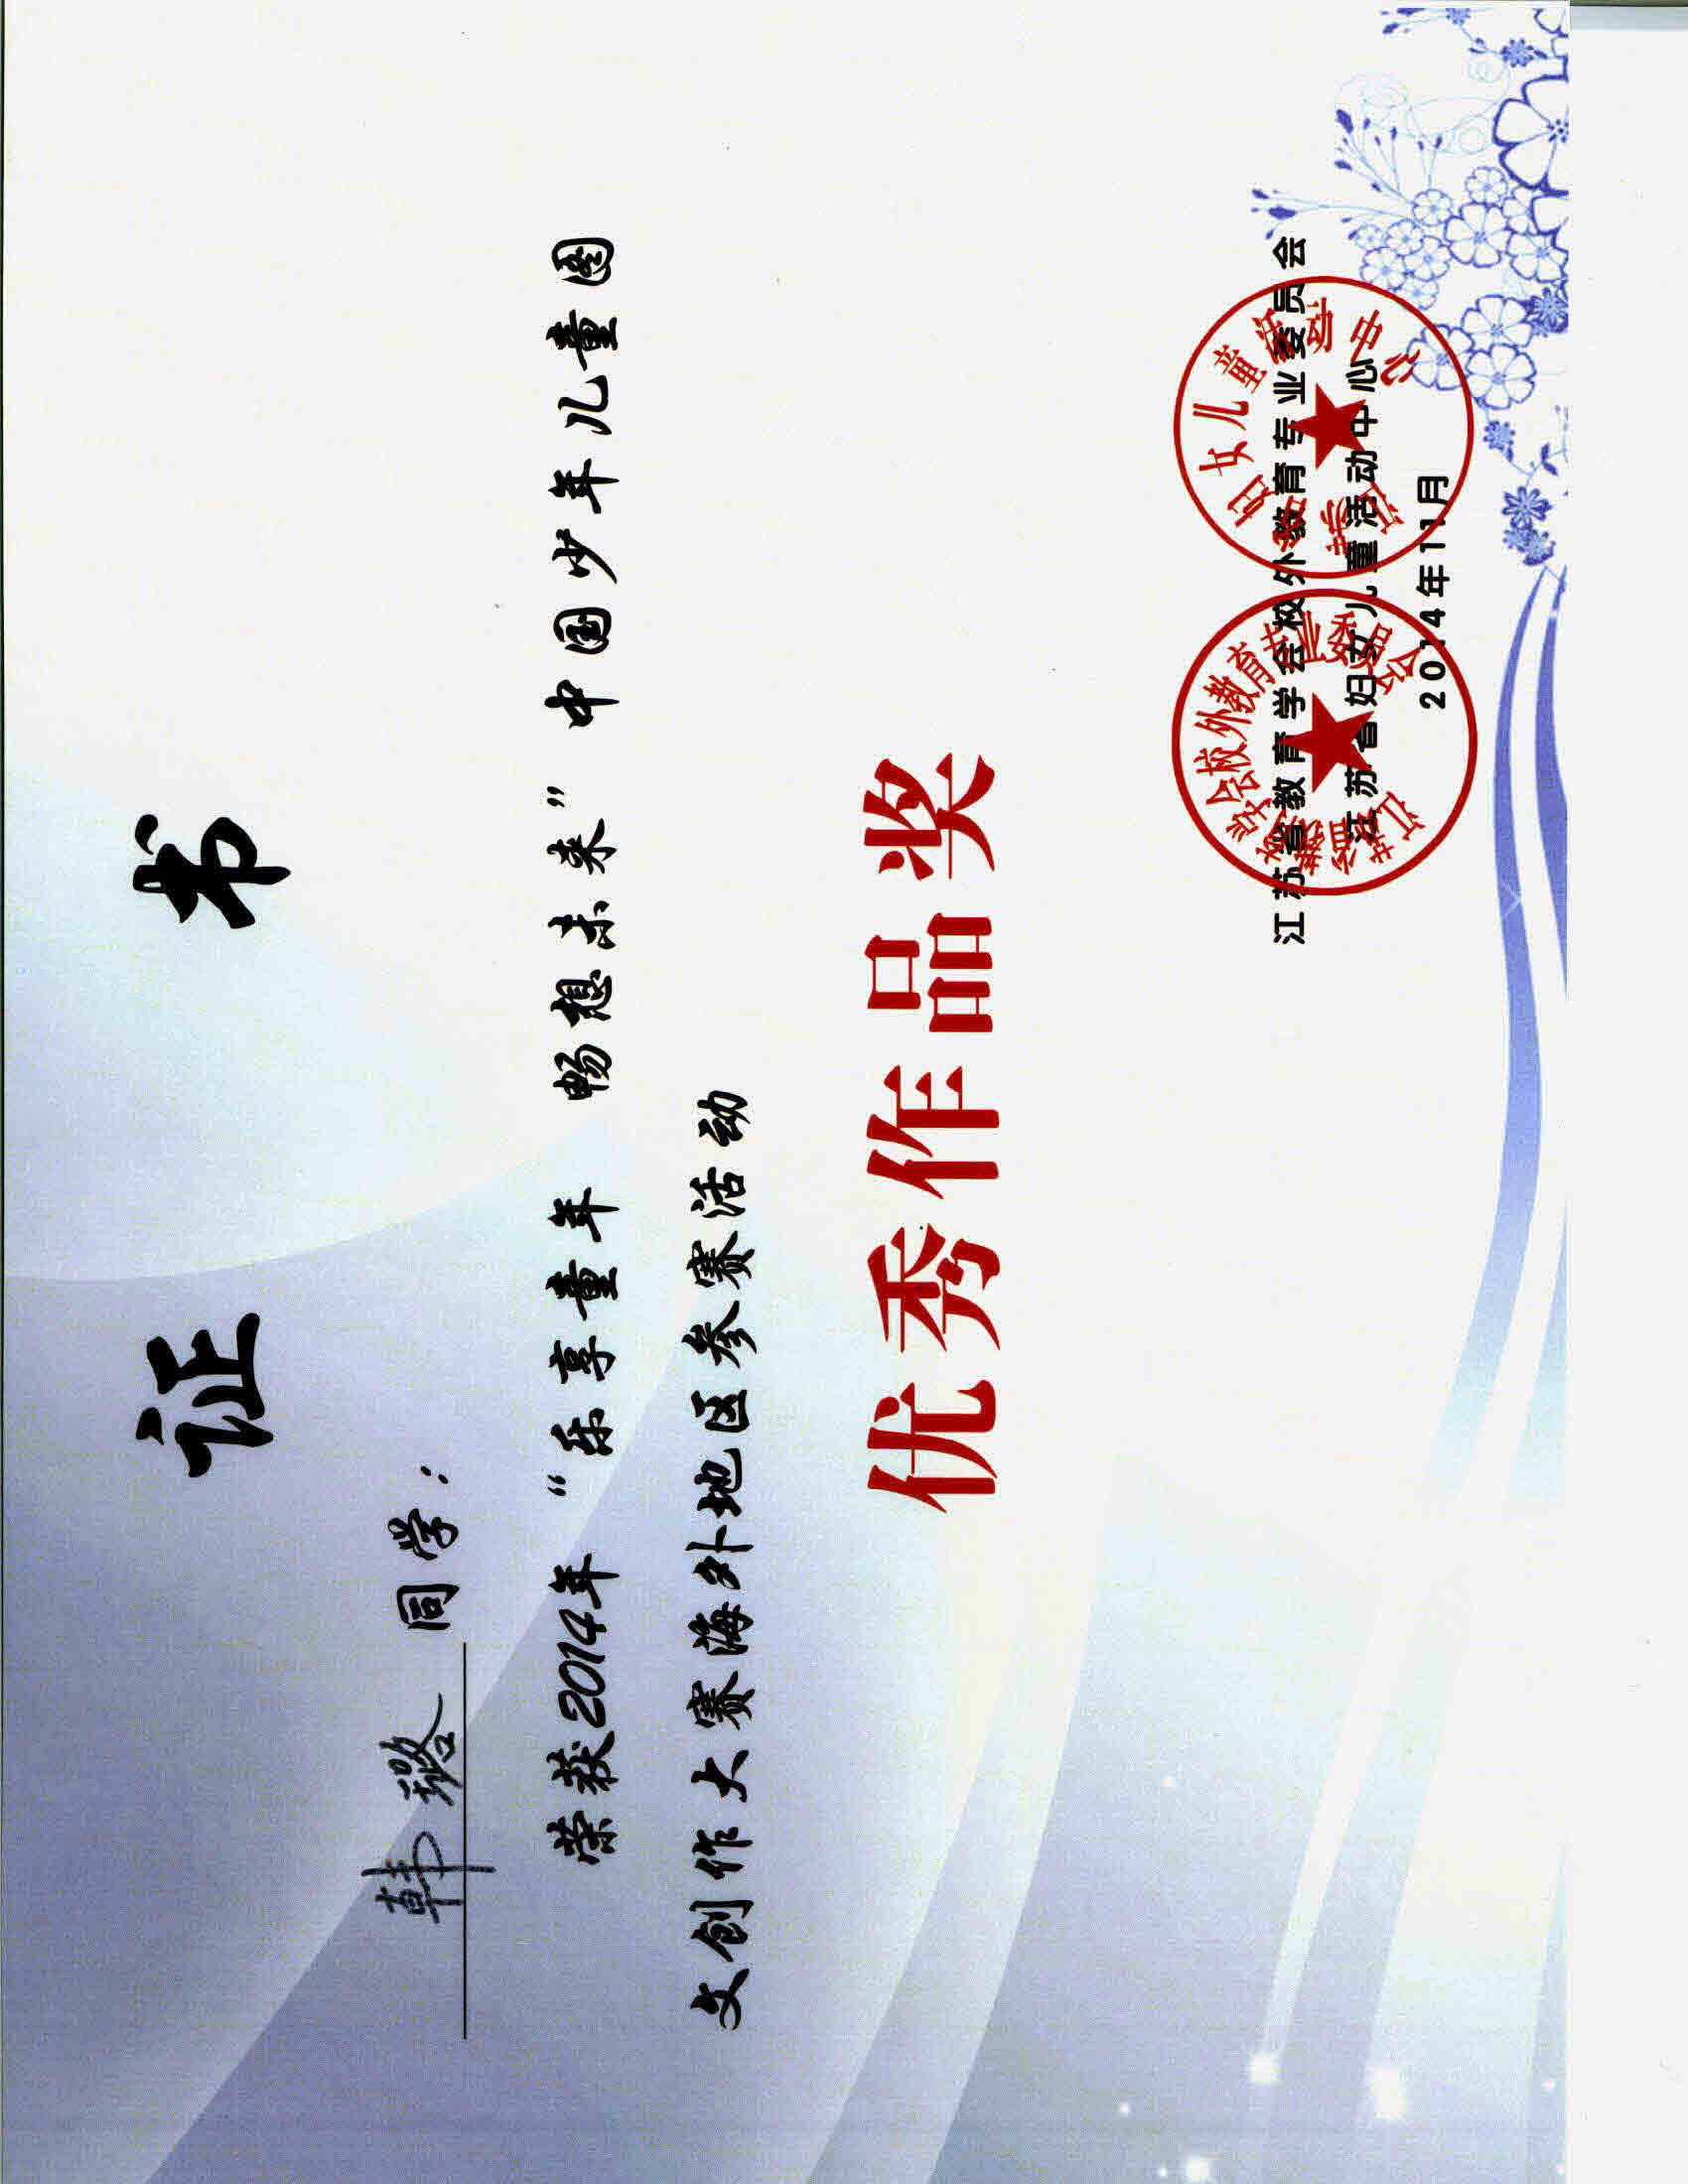 证 书
韩 同学：
荣获2014年“乐享童年 畅想未来”中国少年儿童图
文创作大赛海外地区参赛活动
优秀作品奖
江苏省教育学会校外教育专业委员会
江苏省妇女儿童活动中心
2014年11月
江苏省教育学会校外教育专业委员会
江苏省妇女儿童活动中心